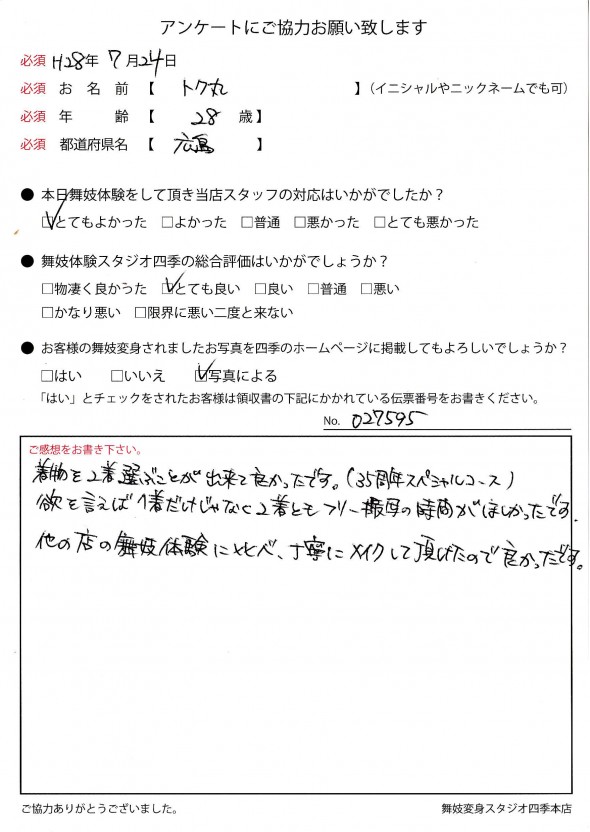 アンケートにご協力お願い致します
必須 H28年 7月24日
必須 お名前【 トク丸 】（イニシャルやニックネームでも可）
必須 年齢【 28 歳】
必須 都道府県名【 広島 】
● 本日舞妓体験をして頂き当店スタッフの対応はいかがでしたか？
☑とてもよかった □よかった □普通 □悪かった □とても悪かった
● 舞妓体験スタジオ四季の総合評価はいかがでしょうか？
□物凄く良かうた ☑とても良い □良い □普通 □悪い
□かなり悪い □限界に悪い二度と来ない
● お客様の舞妓変身されましたお写真を四季のホームページに掲載してもよろしいでしょうか？
□はい □いいえ ☑写真による
「はい」とチェックをされたお客様は領収書の下記にかかれている伝票番号をお書きください。
No. 027595
ご感想をお書き下さい。
着物を2着選ぶことが出来て良かったです。（35周年スペシャルコース）
欲を言えば1着だけじゃなく2着ともフリー撮写の時間がほしかったです.
他の店の舞妓体験に比べ、丁寧にメイクして頂けたので良かったです。
ご協力ありがとうございました。
舞妓変身スタジオ四季本店